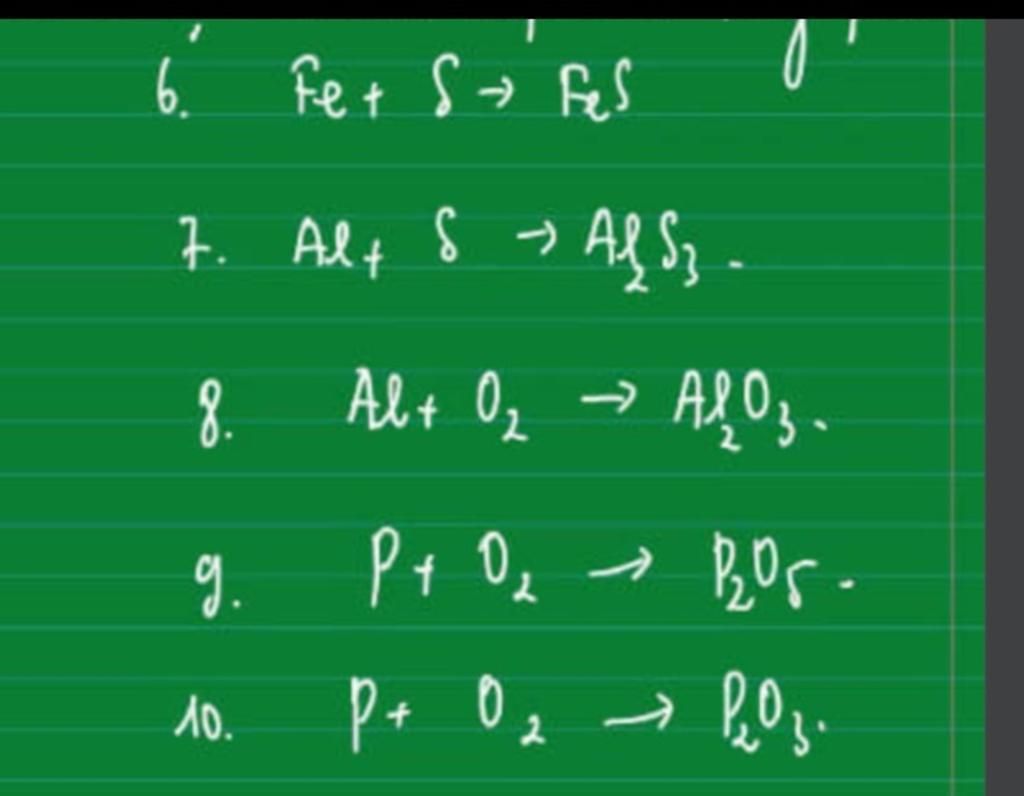 6. Fe + S → FeS
7. Al + S → Al₂S₃.
8. Al + O₂ → Al₂O₃.
9. P + O₂ → P₂O₅.
10. P + O₂ → P₂O₃.